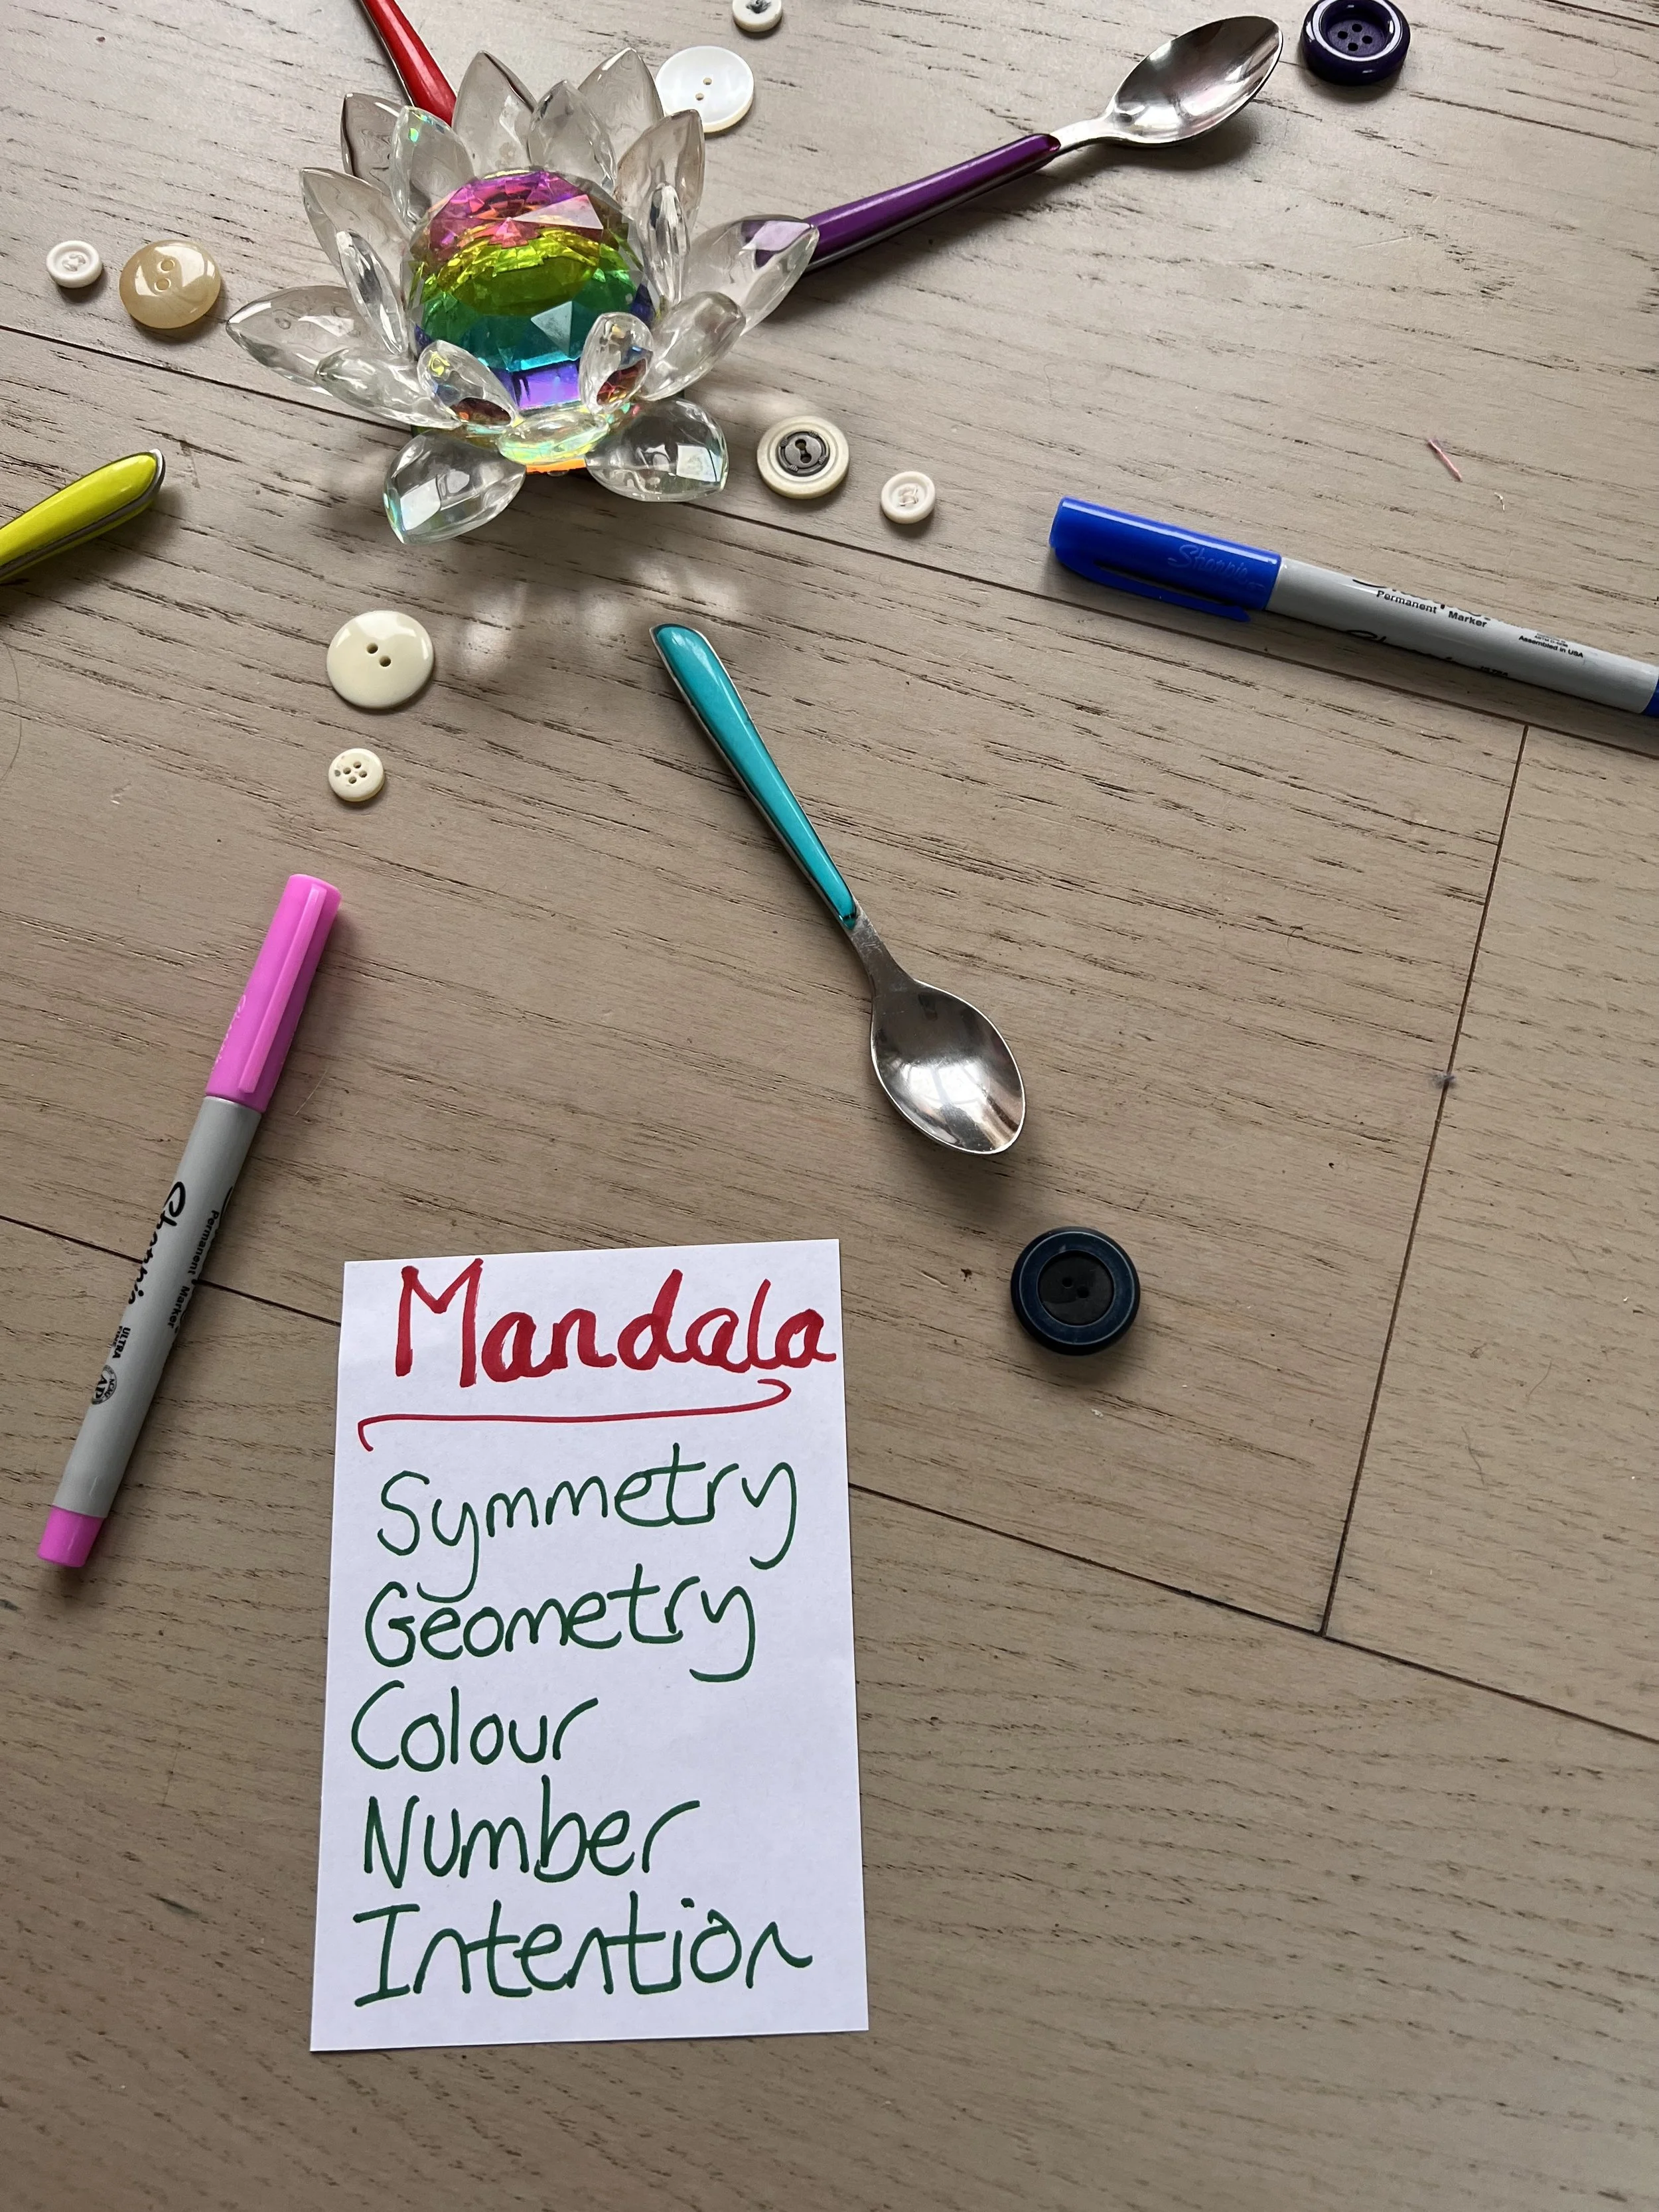 Sharpie
Permanent Marker
Assembled in USA
Sharpie
Permanent Marker
ULTRA
FINE
Mandala
Symmetry
Geometry
Colour
Number
Intention